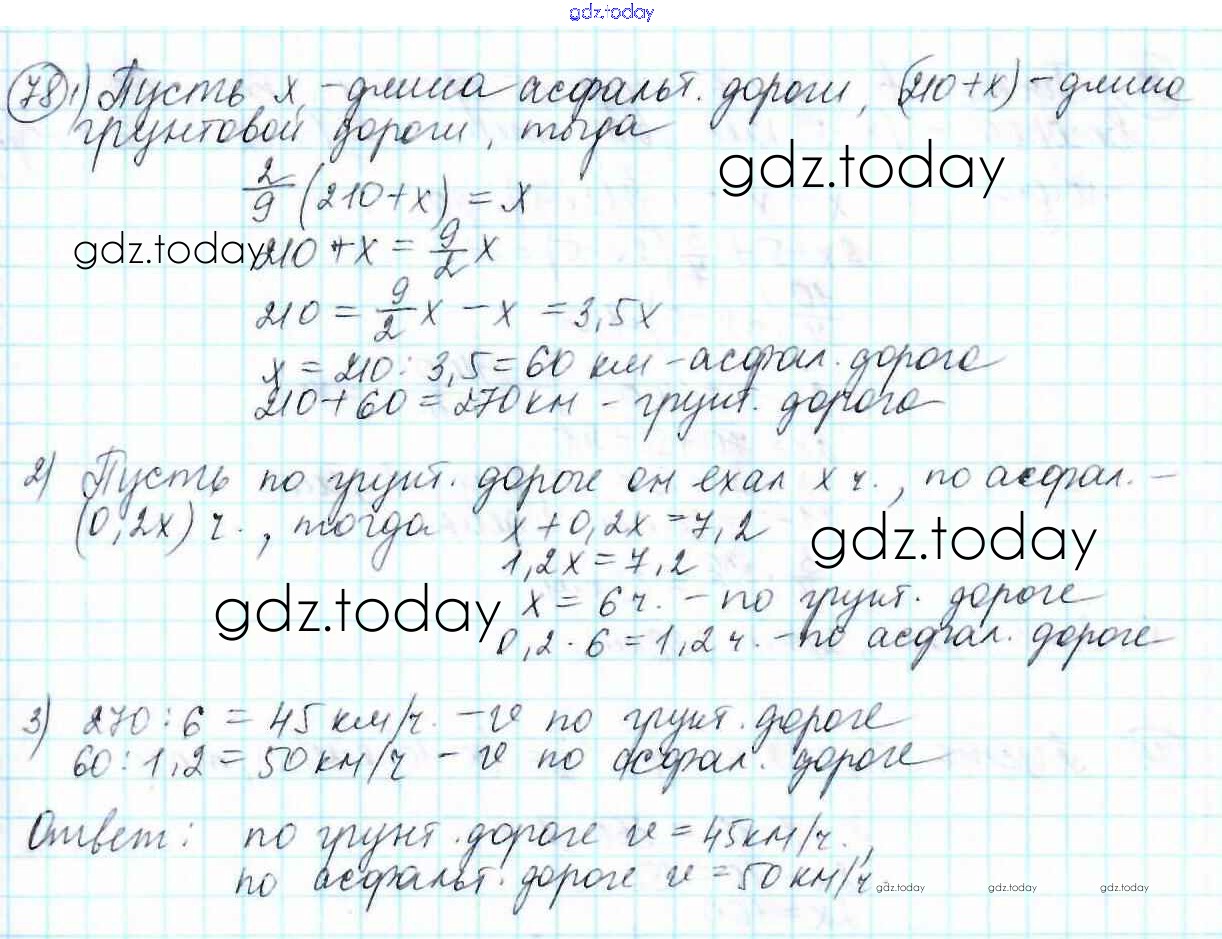 gdz.today
78 1) Пусть x - длина асфальт. дороги, (210+x) - длина
грунтовой дороги, тогда
gdz.today
2/9 (210+x) = x
gdz.today
210 + x = 9/2 x
210 = 9/2 x - x = 3,5x
x = 210 : 3,5 = 60 км - асфал. дорога
210 + 60 = 270 км - грунт. дорога
2) Пусть по грунт. дороге он ехал x ч., по асфал. -
(0,2x) ч., тогда x + 0,2x = 7,2
gdz.today
1,2x = 7,2
gdz.today
x = 6 ч. - по грунт. дороге
0,2 · 6 = 1,2 ч. - по асфал. дороге
3) 270 : 6 = 45 км/ч. - v по грунт. дороге
60 : 1,2 = 50 км/ч - v по асфал. дороге
Ответ: по грунт. дороге v = 45 км/ч.,
по асфальт. дороге v = 50 км/ч
gdz.today gdz.today gdz.today